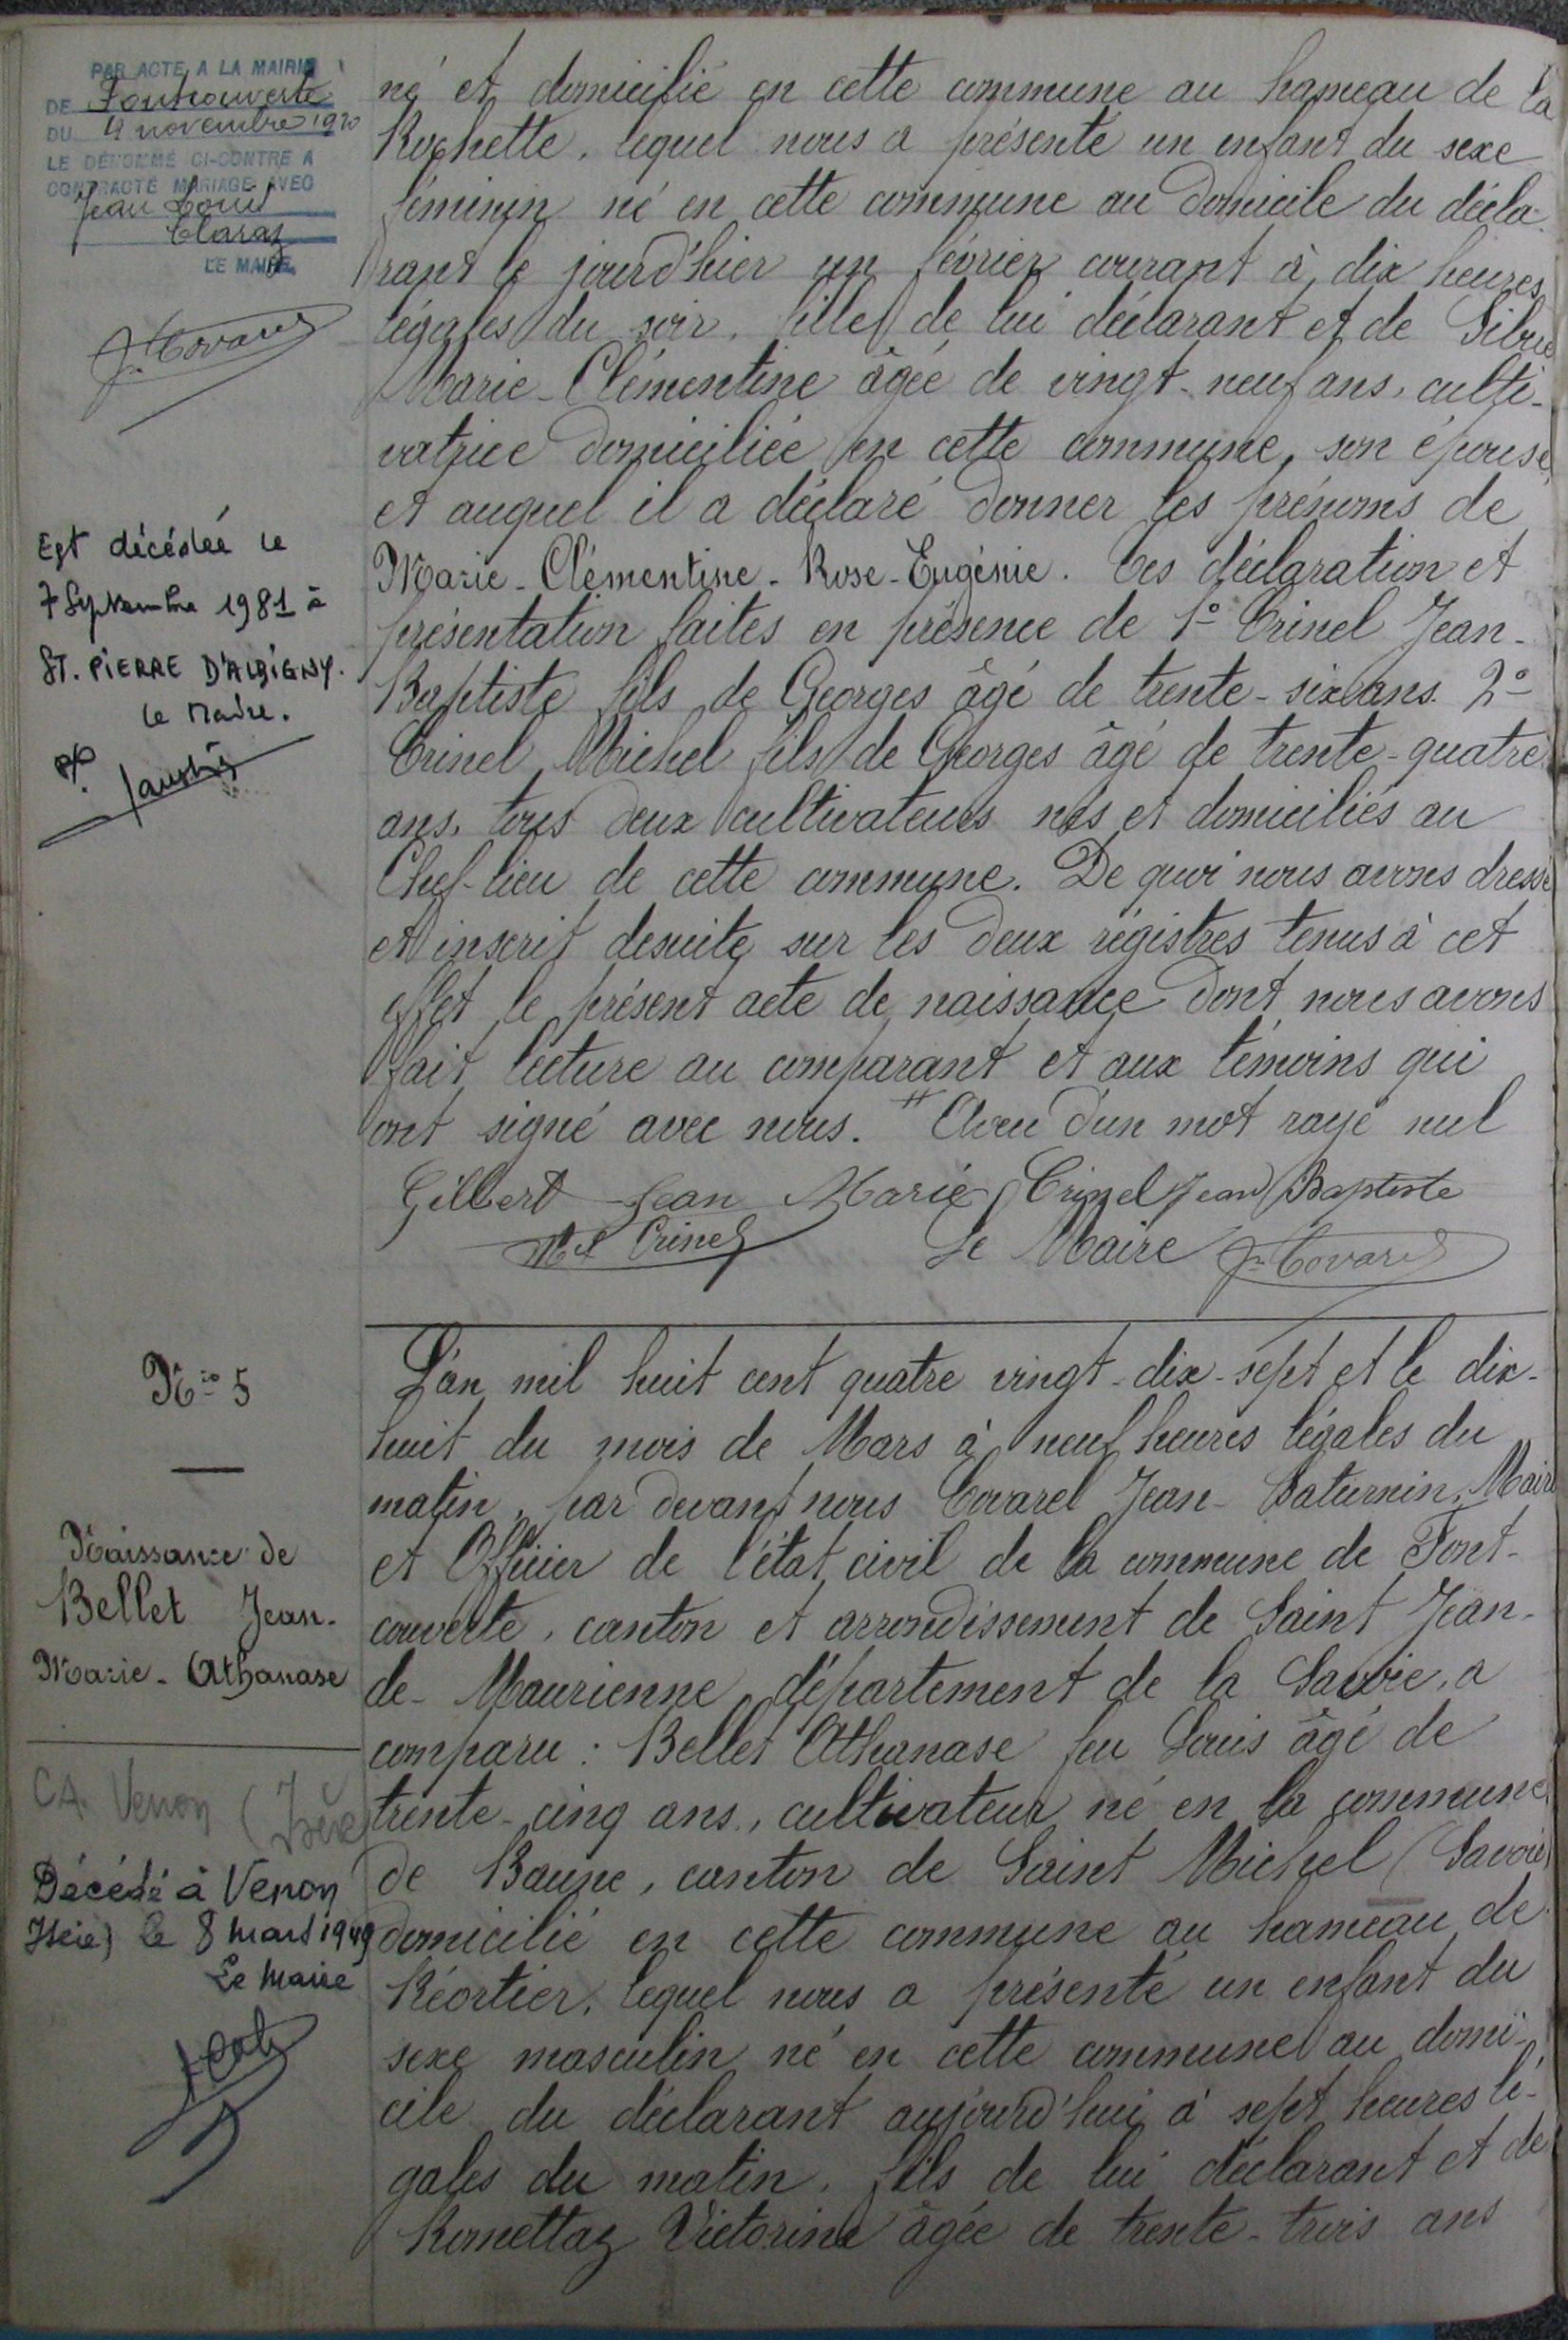 PAR ACTE A LA MAIRIE
DE Fontcouverte
DU 4 novembre 1920
LE DÉNOMMÉ CI-CONTRE A
CONTRACTÉ MARIAGE AVEC
Jean Louis
Claraz
LE MAIRE,
Est décédée le
7 Septembre 1981 à
ST. PIERRE D'ALBIGNY.
le Maire.
né et domicilié en cette commune au hameau de la
Rochette, lequel nous a présenté un enfant du sexe
féminin né en cette commune au domicile du décla-
rant le jourd'hier un février courant à dix heures
légales du soir, fille de lui déclarant et de
Marie-Clémentine âgée de vingt-neuf ans, culti-
vatrice domiciliée en cette commune, son épouse,
et auquel il a déclaré donner les prénoms de
Marie-Clémentine-Rose-Eugénie. Ces déclaration et
présentation faites en présence de 1° Crinel Jean-
Baptiste fils de Georges âgé de trente-six ans. 2°
Crinel Michel fils de Georges âgé de trente-quatre
ans, tous deux cultivateurs nés et domiciliés au
Chef-lieu de cette commune. De quoi nous avons dressé
et inscrit desuite sur les deux régistres tenus à cet
effet le présent acte de naissance dont nous avons
fait lecture au comparant et aux témoins qui
ont signé avec nous. # Aveu d'un mot rayé nul
Gilbert Jean Marie Crinel Jean Baptiste
Mel Crinel Le Maire Jn Covarel
Nio 5
Naissance de
Bellet Jean-
Marie-Athanase
CA. Venon (Isère
Décédé à Venon
Isère) le 8 mars 1949
Le Maire
L'an mil huit cent quatre vingt-dix-sept et le dix-
huit du mois de Mars à neuf heures légales du
matin, par devant nous Covarel Jean-Saturnin, Maire
et Officier de l'état civil de la commune de Font-
couverte, canton et arrondissement de Saint Jean-
de-Maurienne département de la Savoie, a
comparu : Bellet Athanase feu Louis âgé de
trente-cinq ans, cultivateur né en la commune
de Baune, canton de Saint Michel (Savoie)
domicilié en cette commune au hameau de
Réortier, lequel nous a présenté un enfant du
sexe masculin né en cette commune au domi-
cile du déclarant aujourd'hui à sept heures lé-
gales du matin, fils de lui déclarant et de
Romettaz Victorine âgée de trente-trois ans